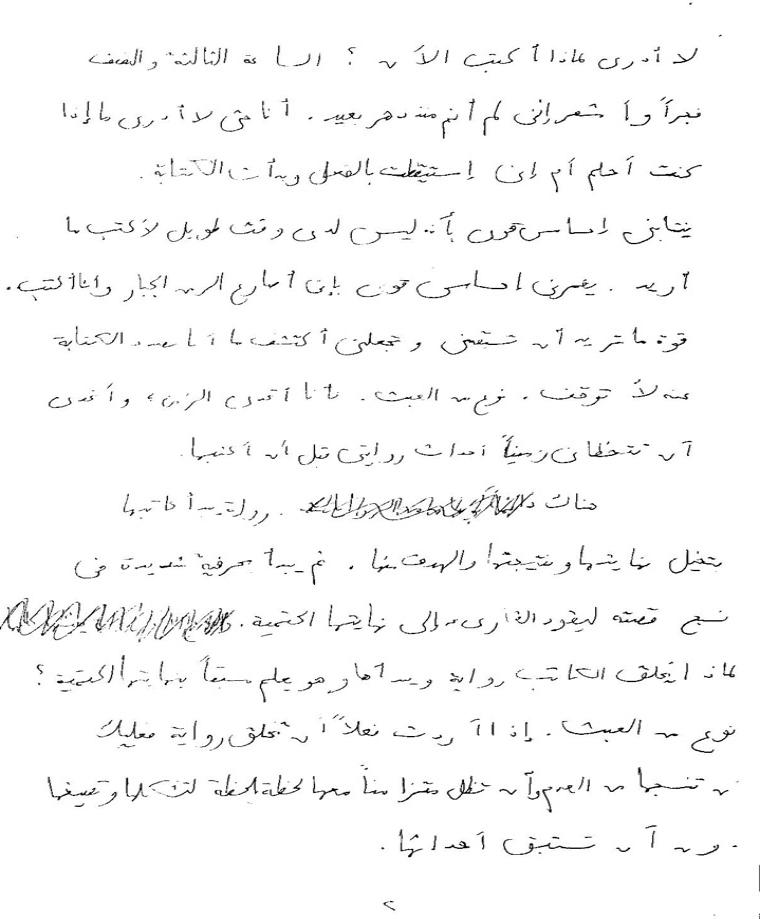 لا أدرى لماذا أكتب الآن ؟ الساعة الثالثة والنصف
فجراً وأشعر إنى لم أنم منذ دهر بعيد . أنا حتى لا أدرى ما إذا
كنت أحلم أم إنى إستيقظت بالفعل وبدأت الكتابة .
ينتابنى إحساس قوى بأنه ليس لدى وقت طويل لأكتب ما
أريد . يغمرنى إحساس قوى بإنى أصارع الزمن الجبار وأنا أكتب .
قوة ما تريد أن تسبقنى وتجعلنى أكتشف ما أنا بصدد الكتابة
عنه لأتوقف . نوع من العبث . فأنا أتحدى الزمن ، وأتحدى
أن تتخطانى زمنياً أحداث روايتى قبل أن أكتبها .
هناك . رواية يبدأ كاتبها
بتخيل نهايتها ونتيجتها والهدف منها . ثم يبدأ بحرفية شديدة فى
نسج قصته ليقود القارىء إلى نهايتها الحتمية .
لماذا يخلق الكاتب رواية ويبدأها وهو يعلم مسبقاً بنهايتها الحتمية ؟
نوع من العبث . إذا أردت فعلاً أن تخلق رواية فعليك
أن تنسجها من العدم وأن تظل متزامناً معها لحظة بلحظة لتشكلها وتصيغها
دون أن تستبق أحداثها .
٢